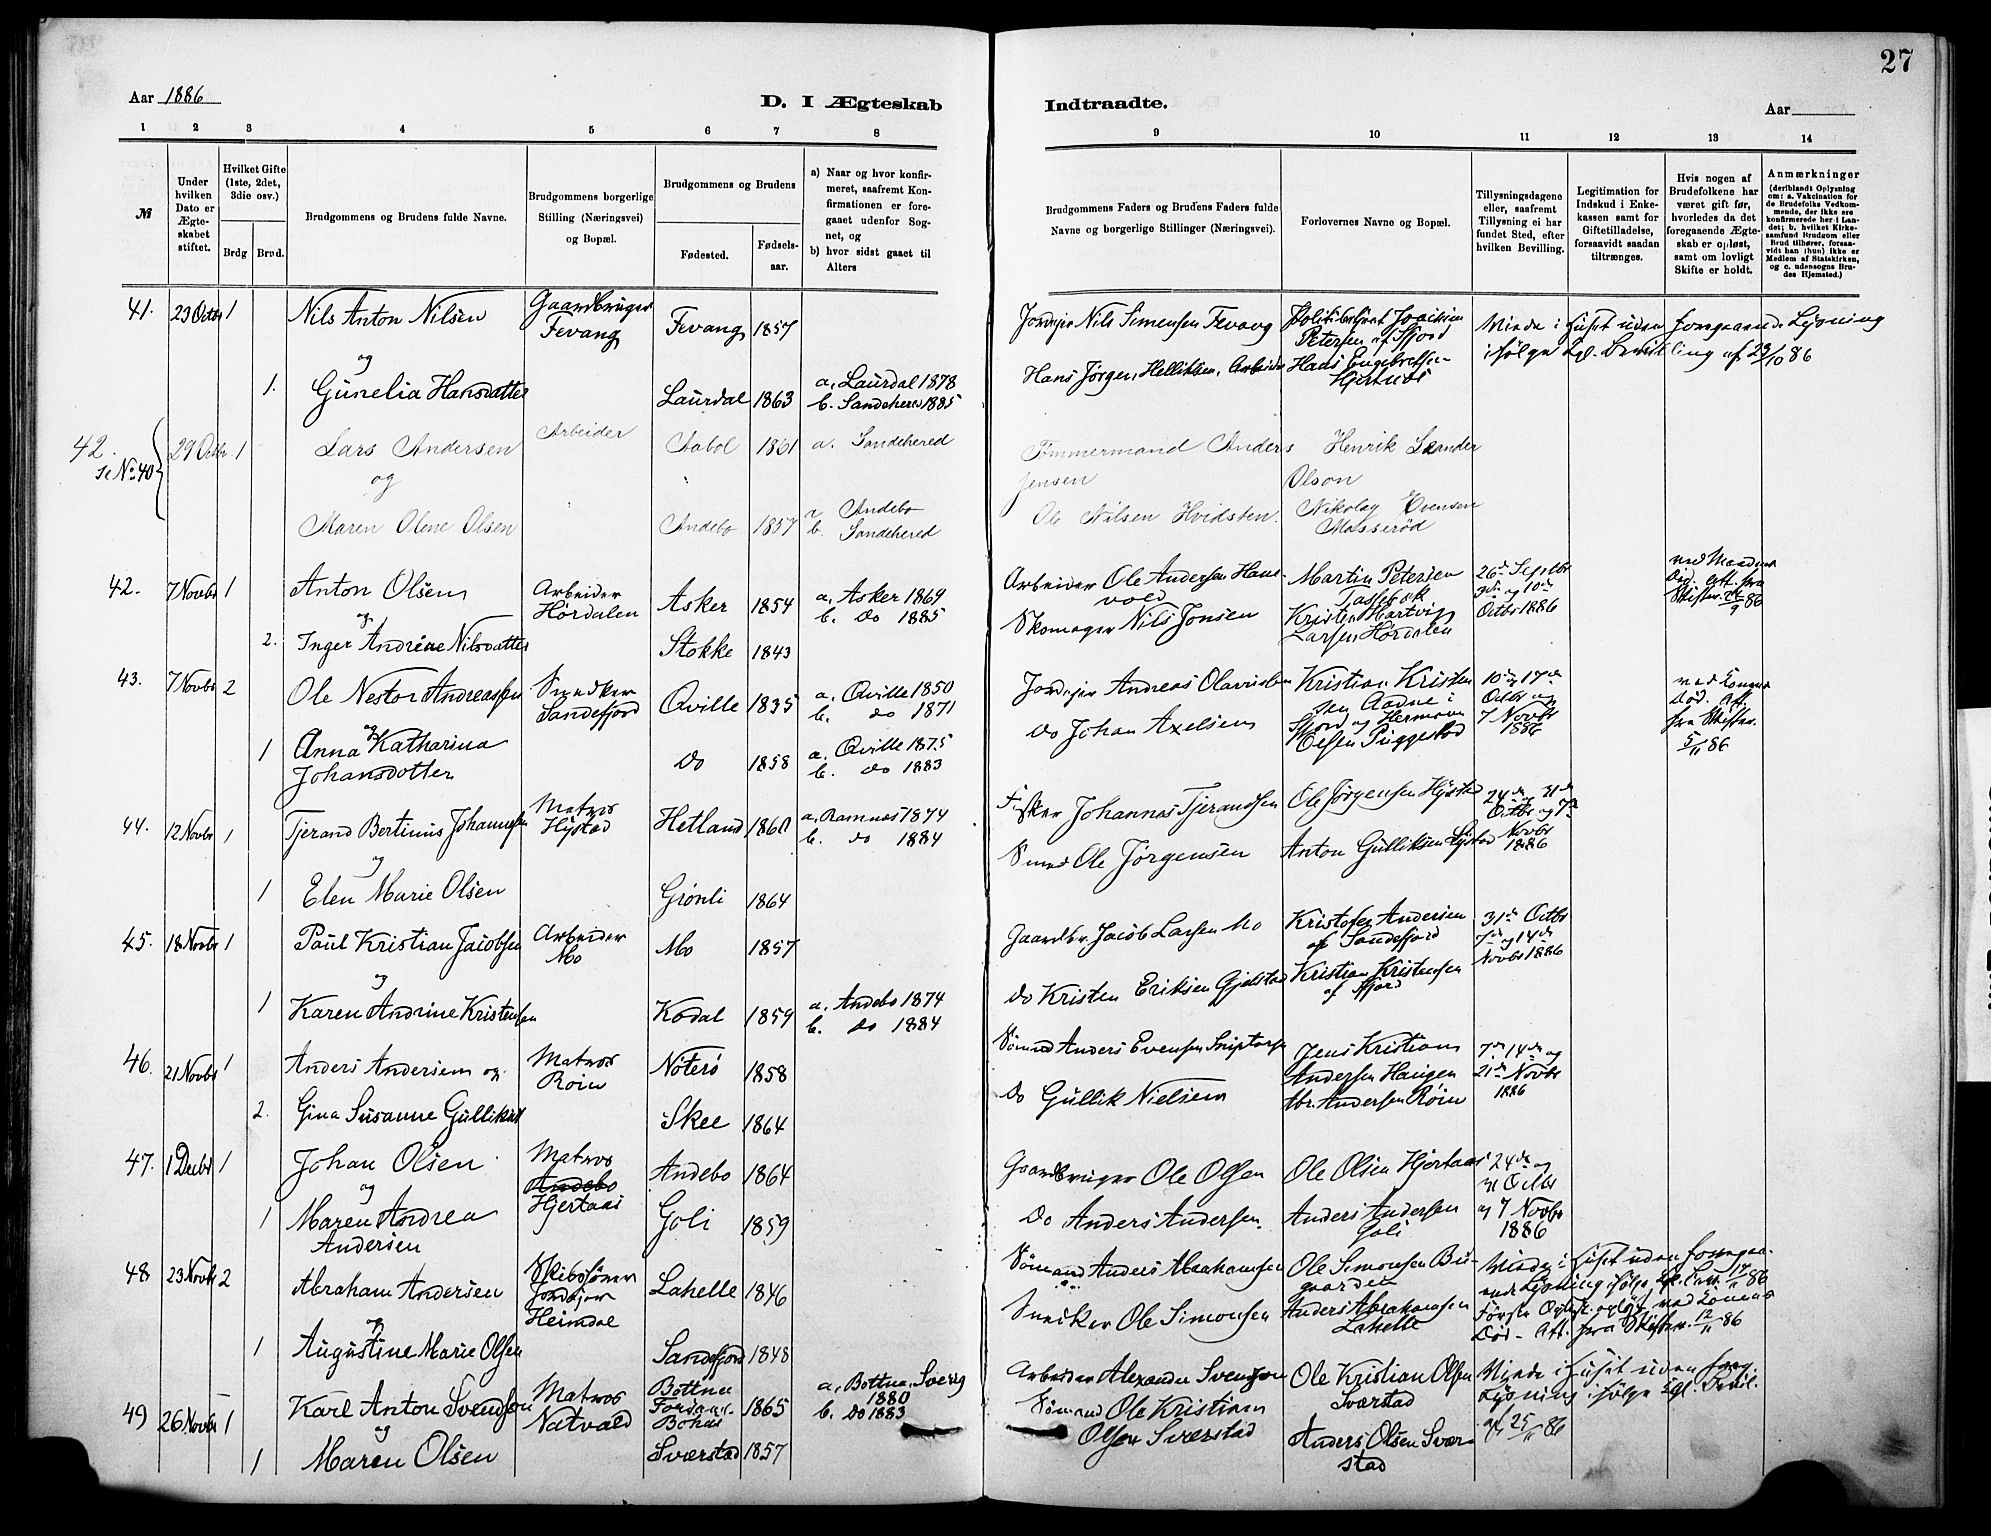 27
Aar 1886
D. I Ægteskab Indtraadte.
Aar
1 2 3 4 5 6 7 8 9 10 11 12 13 14
№
Under hvilken Dato er Ægteskabet stiftet.
Hvilket Gifte (1ste, 2det, 3die osv.)
Brdg Brud.
Brudgommens og Brudens fulde Navne.
Brudgommens borgerlige Stilling (Næringsvei) og Bopæl.
Brudgommens og Brudens
Fødested. Fødselsaar.
a) Naar og hvor konfirmeret, saafremt Konfirmationen er foregaaet udenfor Sognet, og
b) hvor sidst gaaet til Alters
Brudgommens Faders og Brudens Faders fulde Navne og borgerlige Stillinger (Næringsvei).
Forlovernes Navne og Bopæl.
Tillysningsdagene eller, saafremt Tillysning ei har fundet Sted, efter hvilken Bevilling.
Legitimation for Indskud i Enkekassen samt for Giftetilladelse, forsaavidt saadan tiltrænges.
Hvis nogen af Brudefolkene har været gift før, hvorledes da det foregaaende Ægteskab er opløst, samt om lovligt Skifte er holdt.
Anmærkninger (deriblandt Oplysning om: a. Vakcination for de Brudefolks Vedkommende, der ikke ere konfirmerede her i Landet; b. hvilket Kirkesamfund Brudgom eller Brud tilhører, forsaavidt han (hun) ikke er Medlem af Statskirken, og c. udensogns Brudes Hjemsted.)
41. 23 Octbr 1 Nils Anton Nilsen Gaardbruger Fevang Fevang 1857 Jordejer Nils Simensen Fevang Politibetjent Joachim Petersen af Sfjord Viede i Huset uden foregaaende Lysning ifølge Kgl. Bevilling af 23/10 86
og
1. Gunelia Hansdatter Laurdal 1863 a. Laurdal 1878 b. Sandehered 1885 Hans Jørgen Helliksen, Arbeider Hans Engebretsen
42. se No. 40 29 Octbr 1 Lars Andersen Arbeider Aabol 1861 a. Sandehered Tømmermand Anders Jensen Henrik Leander Olson
og
Maren Olene Olsen Andebo 1857 a. Andebo b. Sandehered Ole Nilsen Hvidsten. Nikolay Evensen Masserød
42. 7 Novbr 1 Anton Olsen Arbeider Hørdalen Asker 1854 a. Asker 1869 b. do 1885 Arbeider Ole Andersen Hansvold Martin Petersen Tassebæk 26de Septbr 3die og 10de Octbr 1886 ved Mandens Død. Att. fra Skifter. 24/9 86
og
2. Inger Andrine Nilsdatter Stokke 1843 Skomager Nils Jonsen Kristen Hartvig Larsen Hørdalen
43. 7 Novbr 2 Ole Nestor Andreassen Snedker Sandefjord Qville 1835 a. Qville 1850 b. do 1871 Jordejer Andreas Olaussen Kristian Kristensen Aadne i Sfjord og Herman Olsen Puggestad 10de og 17de Octbr og 7 Novbr 1886 ved Konens Død. Att. fra Skiftr. 5/11 86
og
1 Anna Katharina Johansdotter do 1858 a. Qville 1875 b. do 1883 do Johan Axelsen
44. 12 Novbr 1 Tjerand Bertinius Johannesen Matros Hystad Hetland 1860 a. Ramnes 1874 b. do 1884 Fisker Johannes Tjerandsen Ole Jørgensen Hystad 24de og 31de Octbr og 7de Novbr 1886
og
1 Elen Marie Olsen Grønli 1864 Smed Ole Jørgensen Anton Gulliksen Hystad
45. 18 Novbr 1 Paul Kristian Jacobsen Arbeider Mo Mo 1857 Gaardbr. Jacob Larsen Mo Kristofer Andersen af Sandefjord 31de Octbr 7de og 14de Novbr 1886
og
1 Karen Andrine Kristensen Kodal 1859 a. Andebo 1874 b. do 1884 do Kristen Eriksen Gjelstad Kristian Kristensen af Sfjord
46. 21 Novbr 1 Anders Andersen og Matros Røim Nøterø 1858 Sømand Anders Evensen Sniptorp Jens Kristian Andersen Haugen 7de 14de og 21de Novbr 1886
2. Gina Susanne Gulliksen Skee 1864 do Gullik Nielsen Abr. Andersen Røim
47. 1 Decbr 1 Johan Olsen Matros Andebo Hjertaas Andebo 1864 Gaardbruger Ole Olsen Ole Olsen Hjertaas 24de og 31 Octbr og 7 Novbr 1886
og
1 Maren Andrea Andersen Goli 1859 do Anders Andersen. Anders Andersen Goli
48 23 Novbr 2 Abraham Andersen Skibstømm Jordejer Heimdal Lahelle 1846 Sømand Anders Abrahamsen Ole Simonsen Bugaarden Viede i Huset uden foregaaende Lysning ifølge Kgl. Bev. 17/11 86 Første Ægtesk. opløst ved Konens Død - Att. fra Skiftr. 12/11 86
og
1 Augustine Marie Olsen Sandefjord 1848 Snedker Ole Simonsen Anders Abrahamsen Lahelle
49 26 Novbr 1 Karl Anton Svendsen Matros Natvald Bottna Bohus 1865 a. Bottna, Sverig 1880 b. do 1883 Arbeider Alexander Svensson Ole Kristian Olsen Sværstad Viede i Huset uden foreg. Lysning ifølge Kgl. Bevil. af 25/11 86
og
1 Maren Olsen Sværstad 1857 Sømand Ole Kristian Olsen Sværstad Anders Olsen Sværstad